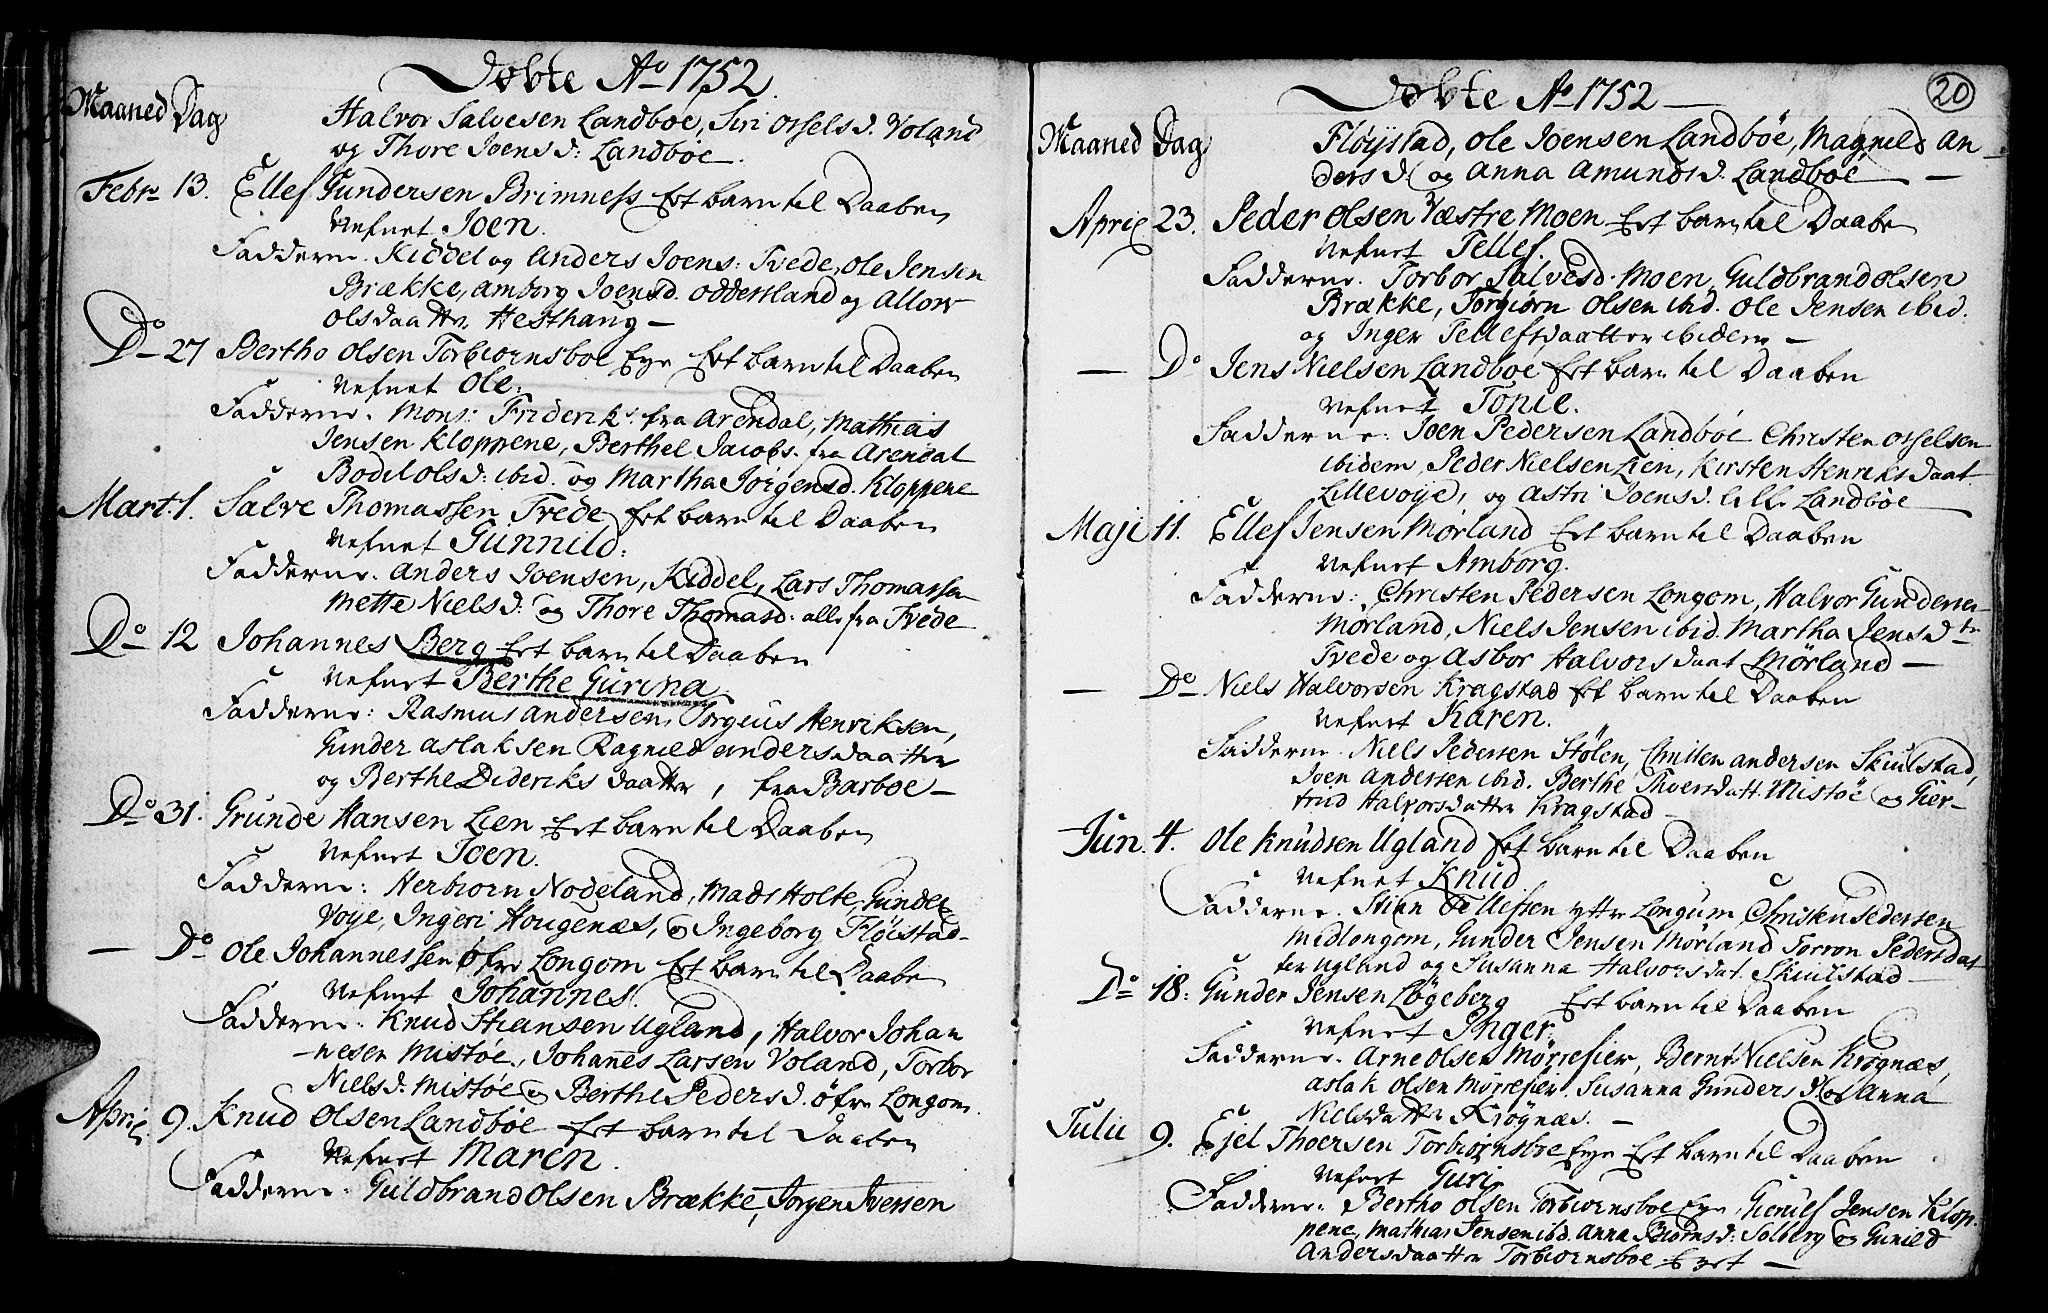 Døbte Ao 1752.
Maaned Dag
Halvor Salvesen Landbøe, Siri Ofselsd. Voland
og Thore Joensd: Landbøe.
Febr 13. Ellef Gundersen Brimness Et barn til Daaben
Nefnet Joen.
Fadderne. Kiddel og Anders Joens: Tvede, Ole Jensen
Brække, Amborg Joensd. Oddersland og Allow
Olsdaatter Hesthang —
Do 27 Bertho Olsen Torbiornsboe Eye Et barn til Daaben
Nefnet Ole.
Fadderne. Mons: Frideriks. fra Arendal, Mathias
Jensen Kloppene, Berthel Jacobs. fra Arendal
Bodil Olsd: ibid. og Martha Jørgensd. Kloppene
Mart. 1. Salve Thomassen Tvede Et barn til Daaben
Nefnet Gunnild.
Fadderne. Anders Joensen, Kiddel, Lars Thomassen
Mette Nielsd: og Thore Thomasd: alle fra Tvede
Do 12 Johannes Berg Et barn til Daaben
Nefnet Berthe Gurina
Fadderne: Rasmus Andersen, Torgius Henriksen,
Gunder Aslaksen Ragnild Andersdaatter
og Berthe Dideriksdaatter, fra Barboe —
Do 31. Grunde Hansen Lien Et barn til Daaben
Nefnet Joen.
Fadderne: Herbiorn Nodeland, Mads Holte, Gunder
Voye, Ingeri Hougenæs, og Ingeborg Fløistad —
— Do Ole Johannessen Øfre Longom Et barn til Daaben
Nefnet Johannes.
Fadderne: Knud Stiansen Ugland, Halvor Johan
-nesen Mistøe, Johannes Larsen Voland, Torbor
Nielsd: Mistøe og Berthe Pedersd. Øfre Longom.
April 9. Knud Olsen Landbøe Et barn til Daaben
Nefnet Maren.
Fadderne: Guldbrand Olsen Brække, Jørgen Iversen
20
Døbte Ao 1752 —
Maaned Dag
Fløystad, Ole Joensen Landbøe, Magnild An-
dersd og Anna Amundsd. Landbøe —
April 23. Peder Olsen Væstre Moen Et barn til Daaben
Nefnet Tellef.
Fadderne. Torbor Salvesd. Moen, Guldbrand Olsen
Brække, Torgiørn Olsen ibid. Ole Jensen ibid.
og Inger Tellefsdaatter ibidem —
— Do Jens Nielsen Landbøe Et barn til Daaben
Nefnet Tonie.
Fadderne: Joen Pedersen Landbøe Christen Ofselsen
ibidem, Peder Nielsen Lien, Kirsten Henriksdaat
Lillevoye, og Astri Joensd. lille Landbøe
Maji 11. Ellef Jensen Mørland Et barn til Daaben
Nefnet Amborg.
Fadderne: Christen Pedersen Longom, Halvor Gundersen
Mørland, Niels Jensen ibid. Martha Jensdtr
Tvede og Asbor Halvorsdaat Mørland —
— Do Niels Halvorsen Kragstad Et barn til Daaben
Nefnet Karen.
Fadderne. Niels Pedersen Stølen, Christen Andersen Skiulstad,
Joen Andersen ibid. Berthe Thoersdatt. Mistøe og Gier-
trud Halvorsdatter Kragstad —
Jun. 4. Ole Knudsen Ugland Et barn til Daaben
Nefnet Knud
Fadderne. Stian Tellefsen ytre Longum, Christen Pedersen
Medlongom, Gunder Jensen Mørland Torron Pedersdat
ter Ugland og Susanna Halvorsdat. Skiulstad —
Do 18: Gunder Jensen Løgeberg Et barn til Daaben
Nefnet Inger.
Fadderne. Arne Olsen Mørrefier, Bernt Nielsen Krøgnæs,
Aslak Olsen Mørrefier. Susanna Gundersd og Anna
Nielsdatter Krøgnæs. —
Julii 9. Ejel Thoersen Torbiørnsboe Eye Et barn til Daaben
Nefnet Guri
Fadderne: Bertho Olsen Torbiornsboe Eye, Giernlef Jensen Klop-
pene, Mathias Jensen ibd. Anna Biørnsd: Solberg og Gunild
Andersdaatter Torbiornsboe Eyet —